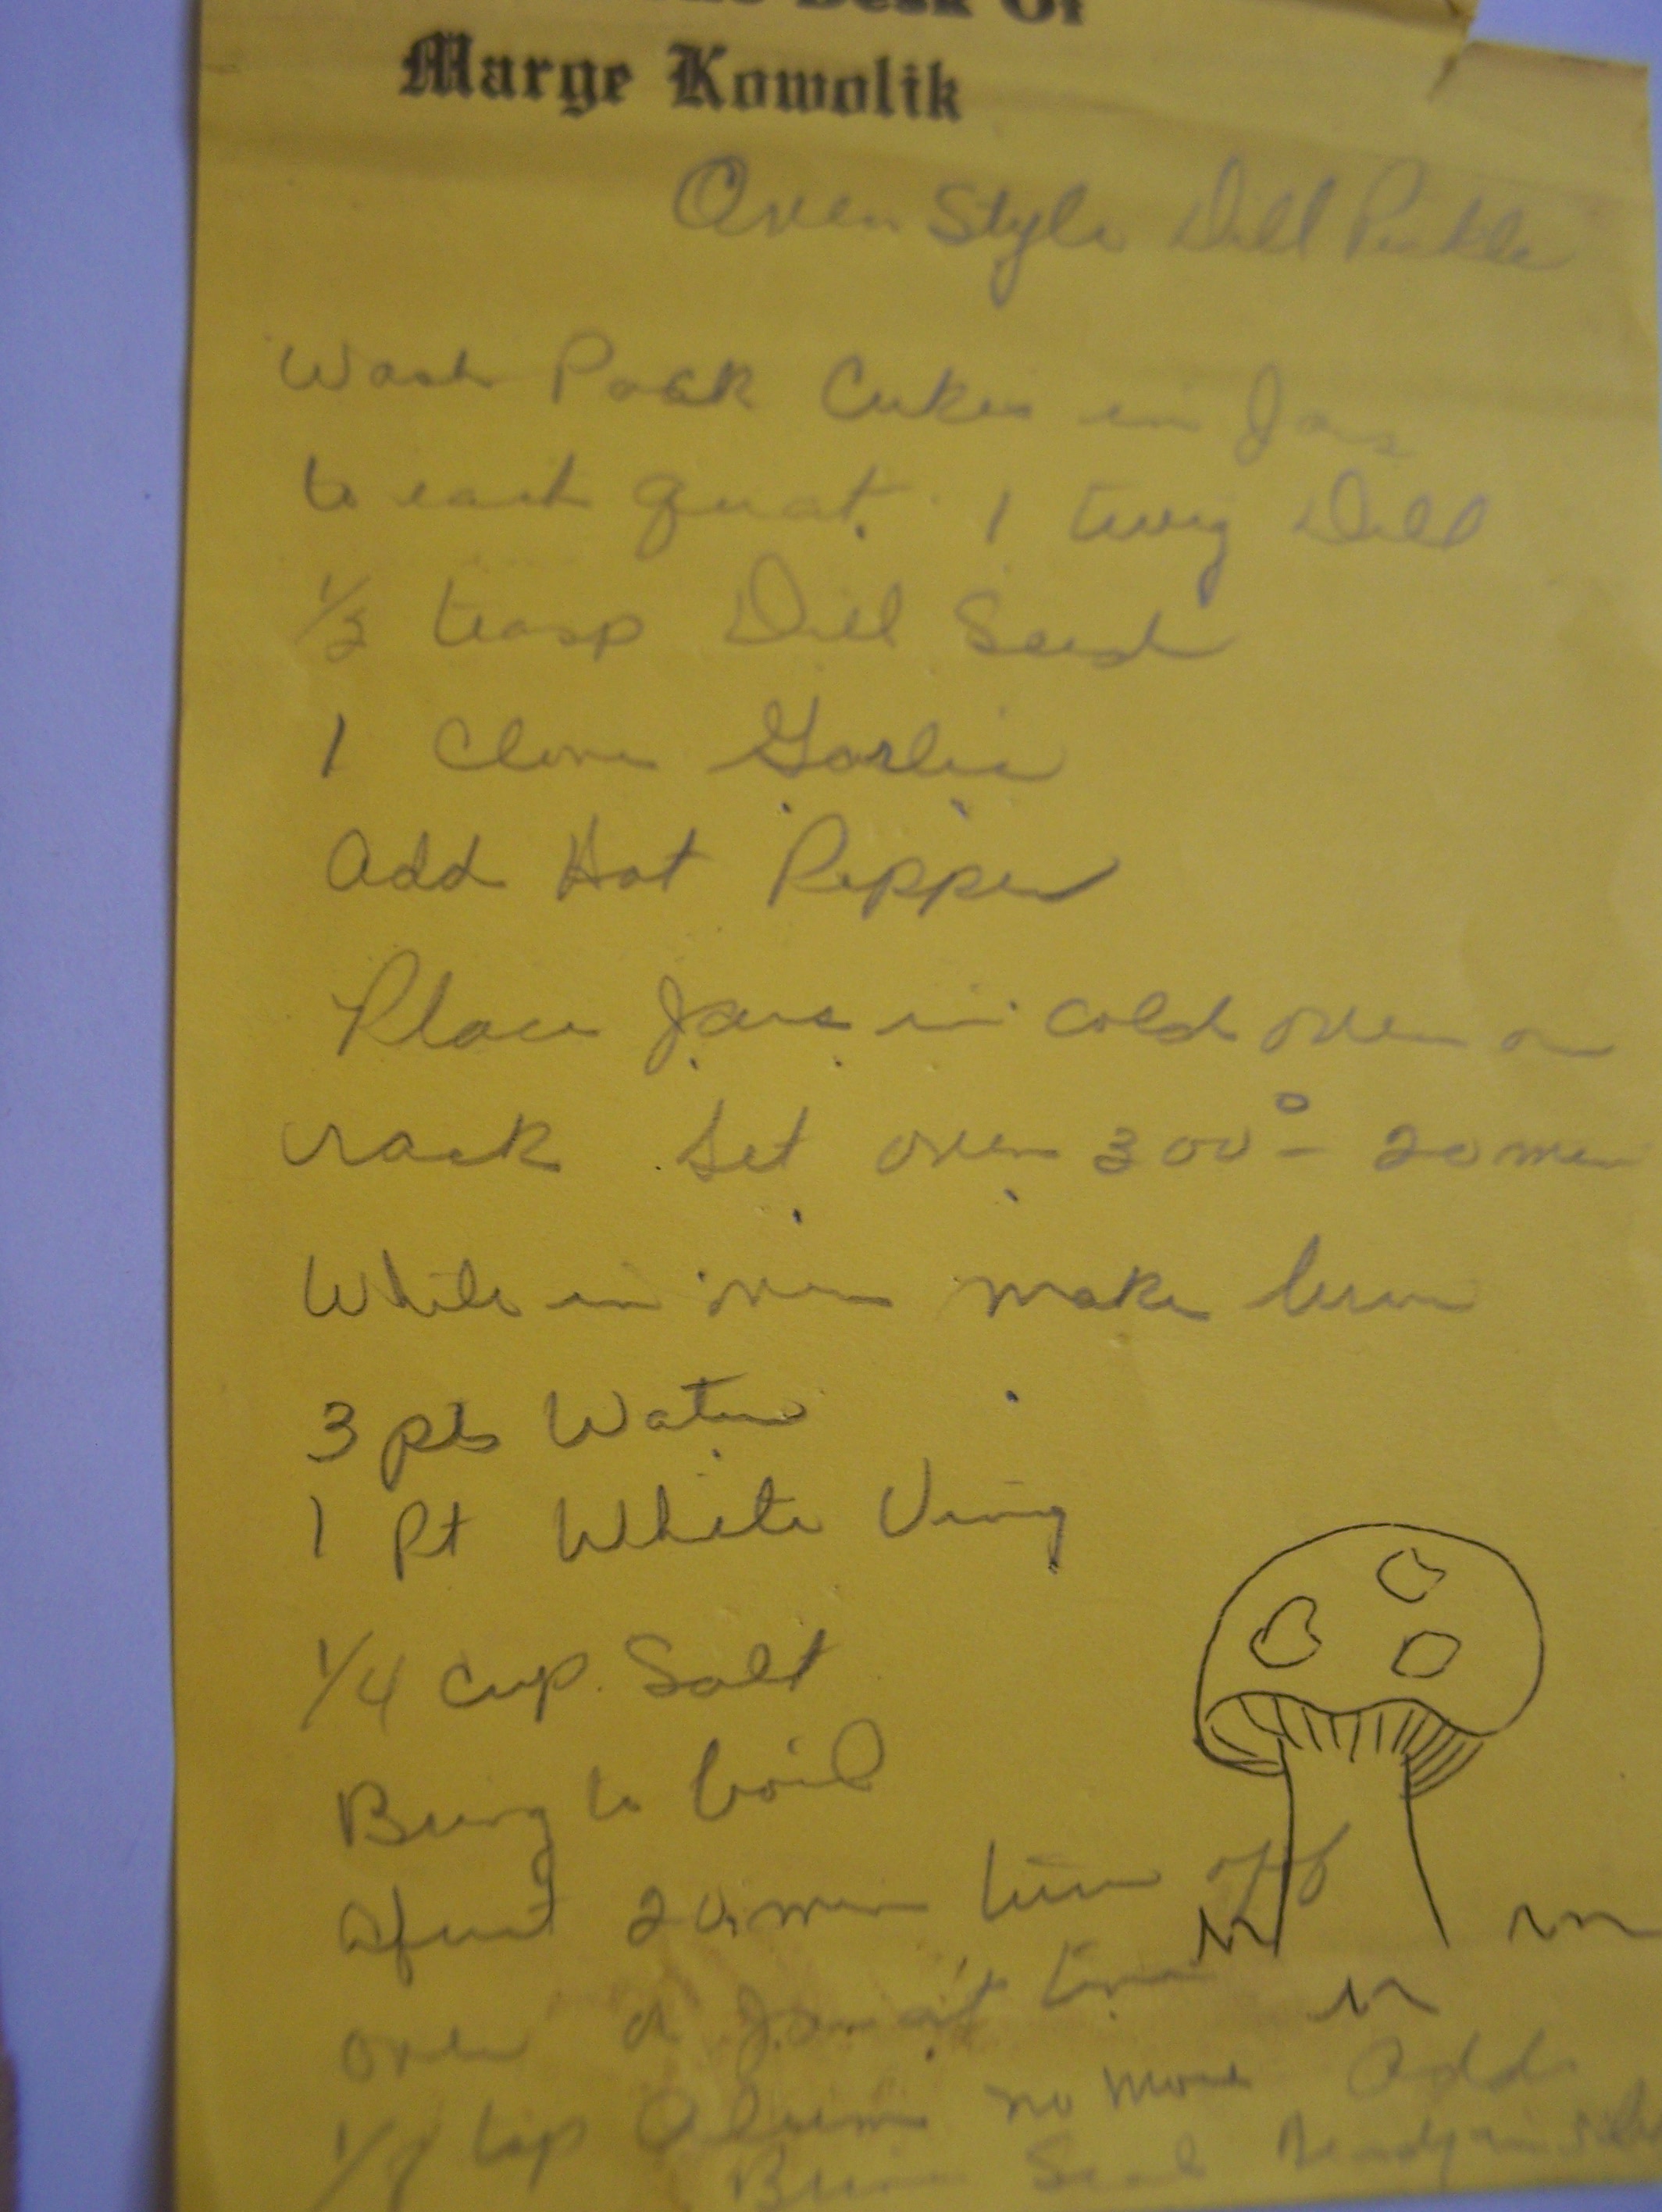 Desk Of
Marge Kowolik
Oven Style Dill Pickle
Wash Pack Cukes in Jars
to each quat. 1 twig Dill
1/2 teasp Dill Seed
1 Clove Garlic
Add Hot Pepper
Place Jars in cold oven on
rack Set oven 300° - 20 min
While in oven make brine
3 pts Water
1 Pt White Vineg
1/4 cup Salt
Bring to boil
20 min turn off
oven a Jar at time
1/8 tsp Alum no more Add
Brine Seal Ready in